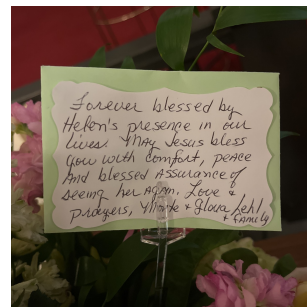 Forever blessed by
Helen's presence in our
lives. May Jesus bless
you with comfort, peace
And blessed Assurance of
seeing her again. Love &
prayers, & Gloria Kehl
& family